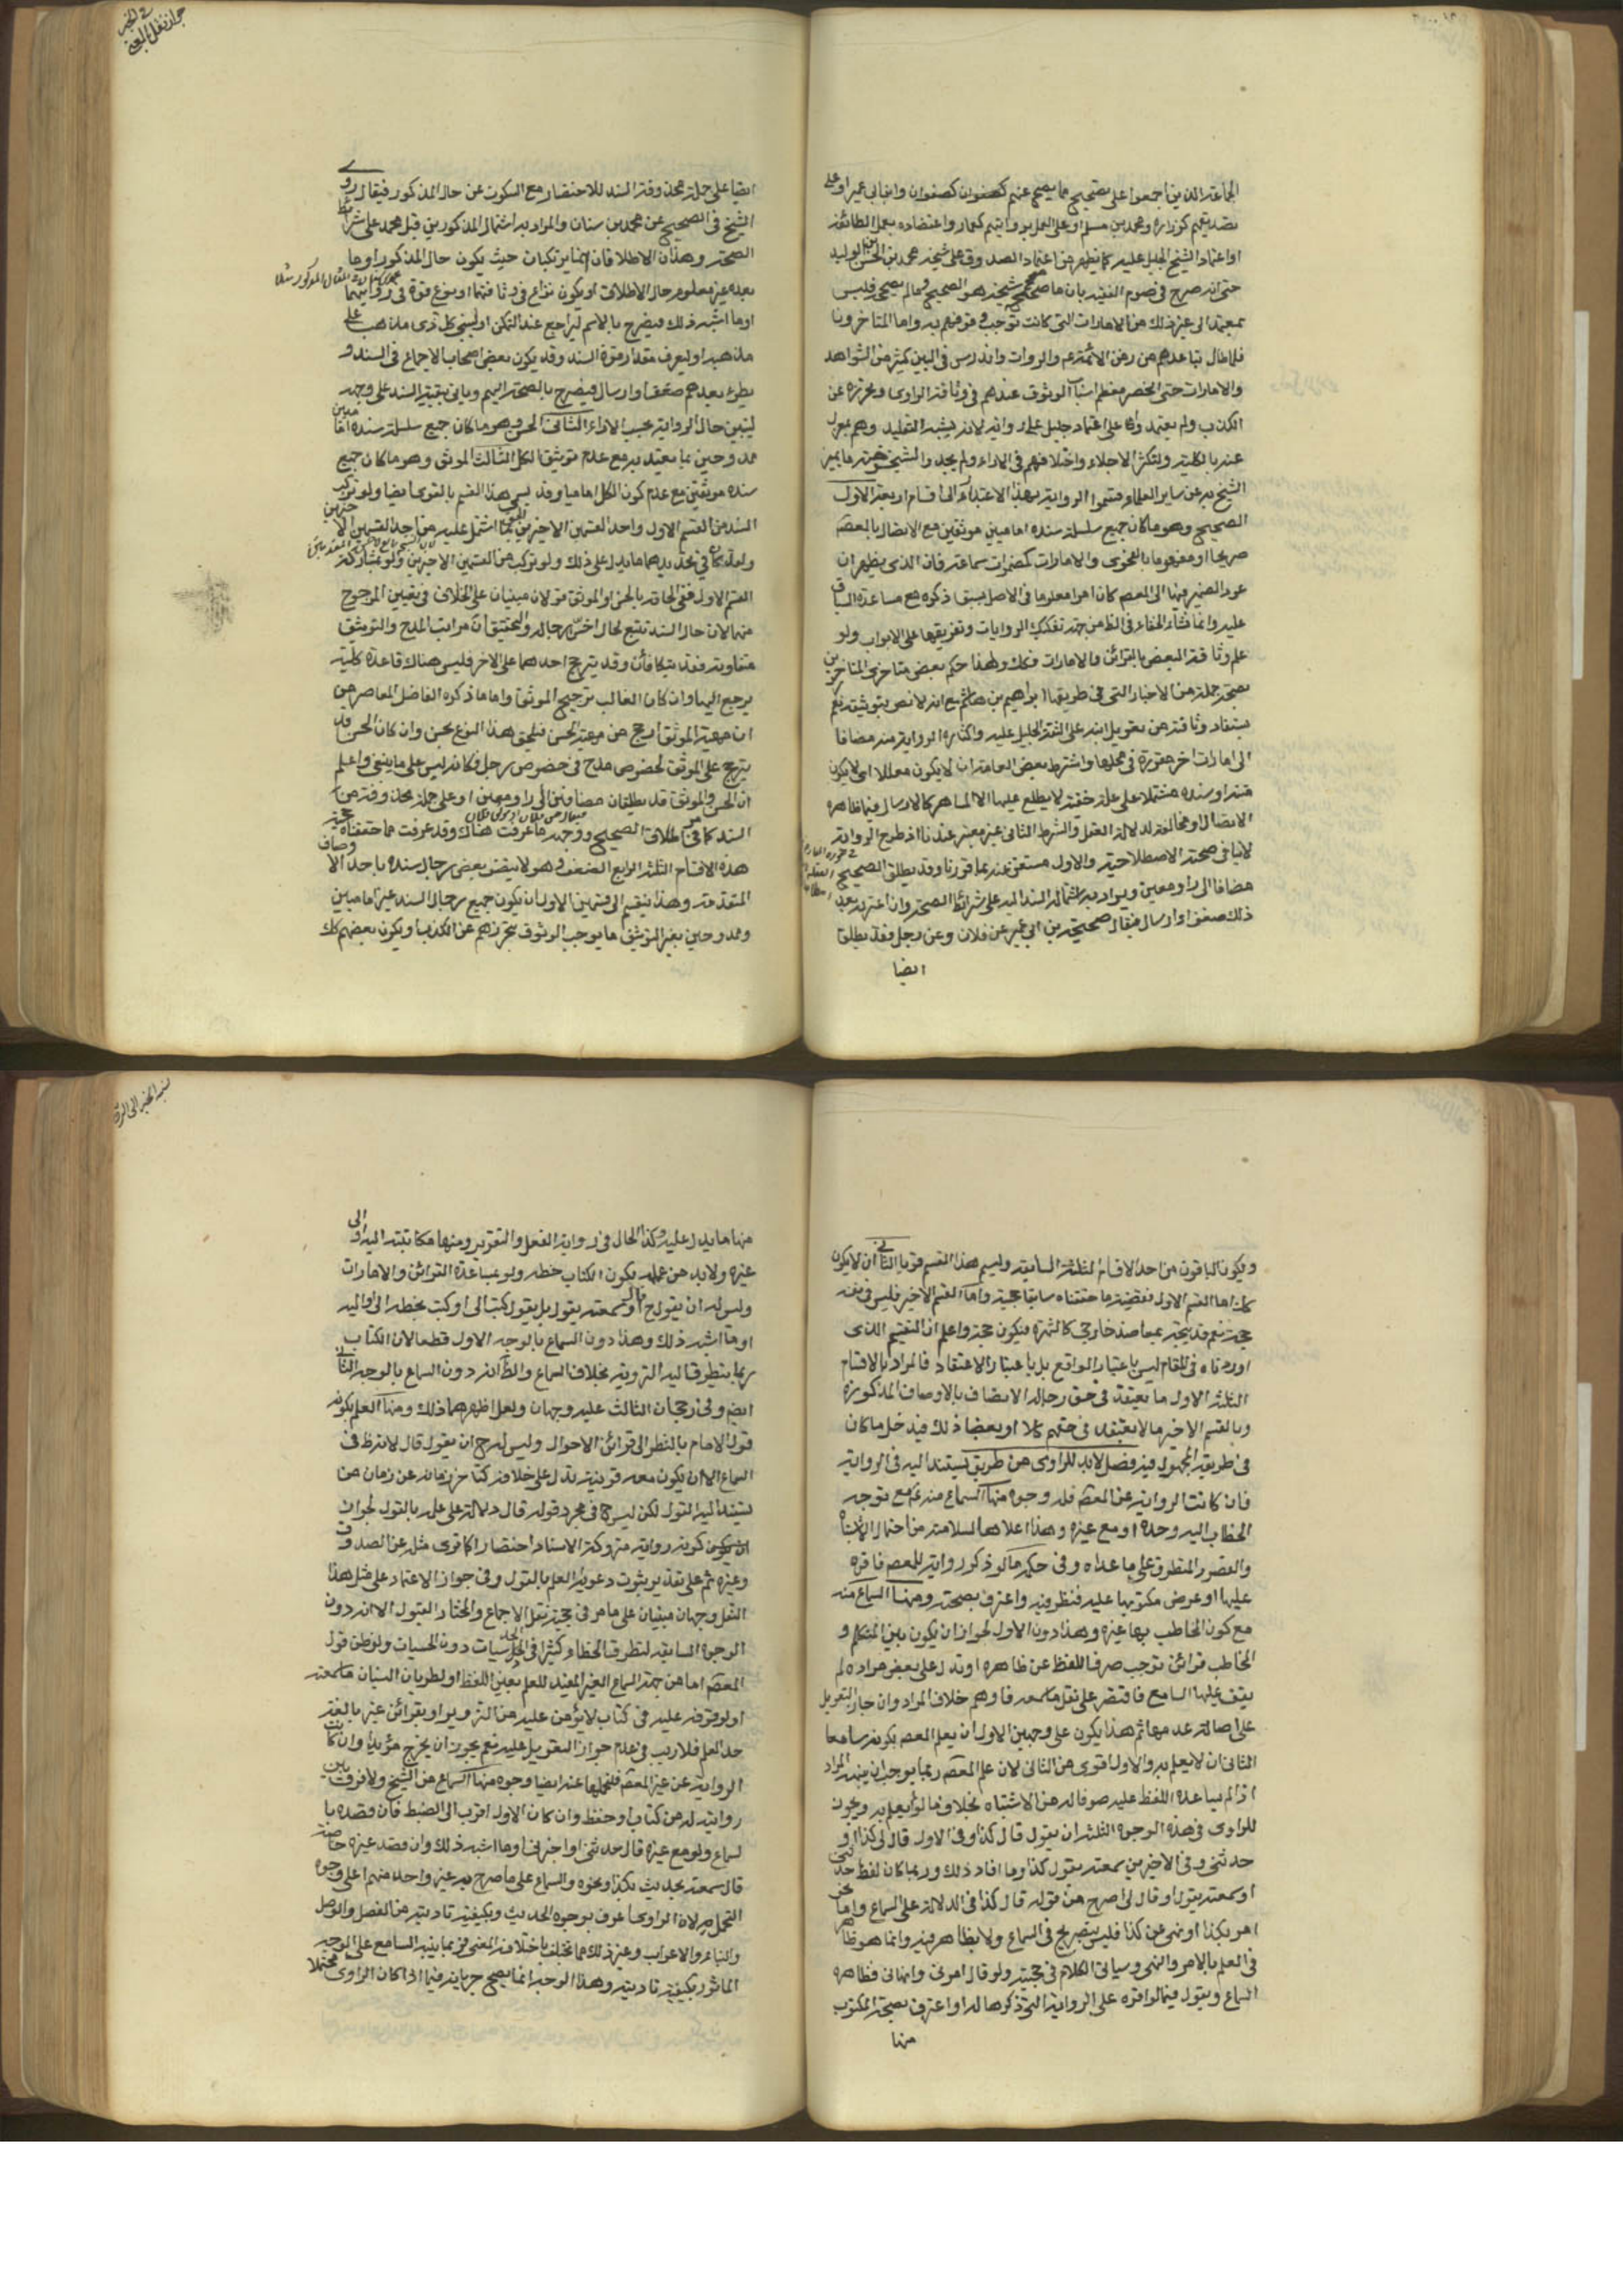 الجماعة الذين اجمعوا على تصحيح ما يصح عنهم كصفوان وابن ابي عمير او على
تصديقهم كزرارة ومحمد بن مسلم او على العمل بروايتهم كعمار واعتضاده بعمل الطائفة
او اعتماد الشيخ الجليل عليه كما يظهر من اعتماد الصدوق على شيخه محمد بن الحسن بن الوليد
حتى انه صرح في صوم الفقيه بان ما صححه شيخه فهو الصحيح وما لم يصححه فليس
بمعتمد الى غير ذلك من الامارات التي كانت توجب وثوقهم به واما المتاخرون
فلما طال تباعدهم من زمن الائمة ع والرواة واندرس في البين كثير من الشواهد
والامارات حتى انحصر معظم اسباب الوثوق عندهم في وثاقة الراوي وتحرزه عن
الكذب ولم يعتمدوا على اعتماد جليل على رواية لانه يشبه التقليد وهم بمعزل
عنه بالكلية ولتكثر الاجلاء واختلافهم في الاراء ولم يجدوا لشيخوخته ما يميز
الشيخ به عن ساير العلماء قسموا الرواية بهذا الاعتبار الى اقسام اربعة الاول
الصحيح وهو ما كان جميع سلسلة سنده اماميين موثقين مع الاتصال بالمعصوم
صريحا او مفهوما بالفحوى والامارات كمضمرات سماعة فان الذي يظهر ان
عود الضمير فيها الى المعصوم كان امرا معلوما في الاصل بسبق ذكره مع مساعدة السياق
عليه وانما نشاء الخفاء في الظاهر من جهة تفكيك الروايات وتفريقها على الابواب ولو
علم وثاقة البعض بالقرائن والامارات فكك ولهذا حكم بعض متاخري المتاخرين
بصحة جملة من الاخبار التي في طريقها ابراهيم بن هاشم مع انه لا نص بتوثيقه نعم
يستفاد وثاقته من تعويل ابنه على الثقة الجليل عليه واكثاره الرواية منه مضافا
الى امارات اخر مقررة في محلها واشترط بعض العامة ان لا يكون معللا اي لا يكون
متنه او سنده مشتملا على علة خفية لا يطلع عليها الا الماهر كالارسال فيما ظاهره
الاتصال او مخالفته لدلالة العقل والشرط الثاني غير معتبر عندنا اذ طرح الرواية
لا ينافي صحته الاصطلاحية والاول مستغنى عنه بما قررنا وقد يطلق الصحيح
مضافا الى راو معين ويراد به اشتمال السند اليه على شرائط الصحة وان اعتراه بعد
ذلك ضعف او ارسال فيقال صحيحة بن ابي عمير عن فلان وعن رجل وقد يطلق
ايضا
جواز نقل الخبر
ايضا على جملة محذوفة السند للاختصار مع السكوت عن حال المذكور فيقال روى
الشيخ في الصحيح عن محمد بن سنان والمراد به اشتمال المذكورين قبل محمد على شرائط
الصحة وهذان الاطلاقان انما يرتكبان حيث يكون حال المذكور او ما
بعده غير معلوم حال الاطلاق او يكون نزاع في وثاقتهما او نوع قوة في روايتهما
او ما اشبه ذلك فيصرح بالاسم ليراجع عند التمكن او ليبني كل ذي مذهب على
مذهبه او ليعرف مقدار قوة السند وقد يكون بعض اصحاب الاجماع في السند و
يطرء بعدهم ضعف او ارسال فيصرح بالصحة اليهم وياتي بتتمة السند على وجهه
ليتبين حال الرواية بحسب الاراء الثاني الحسن وهو ما كان جميع سلسلة سنده اماميين
ممدوحين بما يعتد به مع عدم توثيق الكل الثالث الموثق وهو ما كان جميع
سنده موثقين مع عدم كون الكل اماميا وقد يسمى هذا القسم بالقوي ايضا ولو تركب
السند من القسم الاول واحد القسمين الاخيرين لحق بما اشتمل عليه من احد القسمين الاخيرين
ولعله كاف في تحديدهما ما يدل على ذلك ولو تركب من القسمين الاخيرين ولو بمشاركة
القسم الاول ففي الحاقه بالحسن او الموثق قولان مبنيان على الخلاف في تعيين المرجوح
منهما لان حال السند تتبع لحال اخس رجاله والتحقيق ان مراتب المدح والتوثيق
متفاوتة فقد يتكافئان وقد يترجح احدهما على الاخر فليس هناك قاعدة كلية
يرجع اليها وان كان الغالب ترجيح الموثق واما ما ذكره الفاضل المعاصر من
ان جهة الموثق ارجح من جهة الحسن فيلحق هذا النوع بحسن وان كان الحسن قد
يترجح على الموثق لخصوص مدح في خصوص رجل فكانه ليس على ما ينبغي واعلم
ان الحسن والموثق قد يطلقان مضافين الى راو معين او على جملة محذوفة من
السند كما مر في اطلاق الصحيح ووجهه ما عرفت هناك وقد عرفت مما حققناه حجية
هذه الاقسام الثلثة الرابع الضعيف وهو ما لا يتصف بعض رجال سنده باحد الاوصاف
المتقدمة وهذا ينقسم الى قسمين الاول ان يكون جميع رجال السند غير اماميين
وممدوحين بغير التوثيق ما يوجب الوثوق بتحرزهم عن الكذب او يكون بعضهم كك
ويكون الباقون من احد الاقسام الثلثة السابقة وليسم هذا القسم قويا الثاني ان لا يكون
كك اما القسم الاول فقضية ما حققناه سابقا حجيته واما القسم الاخير فليس في نفسه
حجة نعم قد ينجبر بمعاضد خارجي كالشهرة فيكون حجة واعلم ان التقسيم الذي
اوردناه في المقام ليس باعتبار الواقع بل باعتبار الاعتقاد فالمراد بالاقسام
الثلثة الاول ما يعتقد في حق رجاله الاتصاف بالاوصاف المذكورة
وبالقسم الاخير ما لا يعتقد في حقهم كلا او بعضا ذلك فيدخل ما كان
في طريقه المجهول فيه فصل لا بد للراوي من طريق يستند اليه في الرواية
فان كانت الرواية عن المعصوم فله وجوه منها السماع منه ع مع توجه
الخطاب اليه وحده او مع غيره وهذا اعلاها لسلامته من احتمال الاشتباه
والقصور المتطرق على ما عداه وفي حكمه ما لو ذكر رواية للمعصوم فاقره
عليها او عرض مكتوبها عليه فنظر فيه واعترف بصحته ومنها السماع منه
مع كون المخاطب بها غيره وهذا دون الاول لجواز ان يكون بين المتكلم و
المخاطب قرائن توجب صرف اللفظ عن ظاهره او تدل على بعض مراده لم
يقف عليها السامع فاقتصر على نقل ما سمعه فاوهم خلاف المراد وان جاز التعويل
على اصالة عدمها ثم هذا يكون على وجهين الاول ان يعلم المعصوم بكونه سامعا
الثاني ان لا يعلم به والاول اقوى من الثاني لان علم المعصوم ربما يوجب ان يفيده المراد
اذا لم يساعده اللفظ عليه صوفا له من الاشتباه بخلاف ما لو لم يعلم به ويجوز
للراوي في هذه الوجوه الثلثة ان يقول قال كذا وفي الاول قال لي كذا او
حدثني وفي الاخيرين سمعته يقول كذا وما افاد ذلك وربما كان لفظ حدثني
او سمعته يقول او قال لي اصرح من قوله قال كذا في الدلالة على السماع واما نحو
امر بكذا او نهى عن كذا فليس بصريح في السماع ولا بظاهر فيه وانما هو ظاهر
في العلم بالامر والنهي وسياتي الكلام في حجيته ولو قال امرني ونهاني فظاهره
السماع ويقول فيما لو اقره على الرواية التي ذكرها له او اعترف بصحة المكتوب
منها
منها ما يدل عليه وكذا الحال في رواية الفعل والتقرير ومنها مكاتبته اليه او الى
غيره ولا بد من علمه بكون الكتاب خطه ولو بمساعدة القرائن والامارات
وليس له ان يقول ح قال او سمعته يقول بل يقول كتب الي او كتب بخطه الي او اليه
او ما اشبه ذلك وهذا دون السماع بالوجه الاول قطعا لان الكتاب
ربما يتطرق اليه التزوير بخلاف السماع والظاهر انه دون السماع بالوجه الثاني
ايضا وفي رجحان الثالث عليه وجهان ولعل اظهرهما ذلك ومنها العلم بكونه
قول الامام بالنظر الى قرائن الاحوال وليس له ح ان يقول قال لانه ظ في
السماع الا ان يكون معه قرينة تدل على خلافه كتاخر زمانه عن زمان من
يستند اليه القول لكن ليس ح في مجرد قوله قال دلالة على علمه بالقول لجواز
كونه رواية متروكة الاسناد اختصارا كما قوى مثله عن الصدوق
وغيره ثم على تقدير ثبوت دعويه العلم بالقول وفي جواز الاعتماد على مثل هذا
النقل وجهان مبنيان على ما مر في حجية نقل الاجماع والمختار القبول الا انه دون
الوجوه السابقة لتطرق الخطاء كثيرا في الحدسيات دون الحسيات ولو ظن قول
المعصوم اما من جهة السماع الغير المفيد للعلم بعين اللفظ او لطريان النسيان ما سمعه
او لوقوفه عليه في كتاب لا يؤمن عليه من التزوير او بقرائن غير بالغة
حد العلم فلا ريب في عدم جواز التعويل عليه نعم يجوز ان يخرج مؤيدا وان كانت
الرواية عن غير المعصوم فلتحملها عنه ايضا وجوه منها السماع من الشيخ ولا فرق بين
روايته له من كتاب او حفظ وان كان الاول اقرب الى الضبط فان قصده با
لسماع ولو مع غيره قال حدثني او اخبرني وما اشبه ذلك وان قصد غيره خاصة
قال سمعته يحدث بكذا ونحوه والسماع على ما صرح به غير واحد منهم اعلى وجوه
التحمل لان الراوي اعرف بوجوه الحديث وبكيفية تاديته من الفصل والوصل
والبناء والاعراب وغير ذلك مما يختلف باختلافه المعنى فربما ينبه السامع على الوجه
الماثور بكيفية تاديته وهذا الوجه انما يصح جريانه فيما اذا كان الراوي محتملا